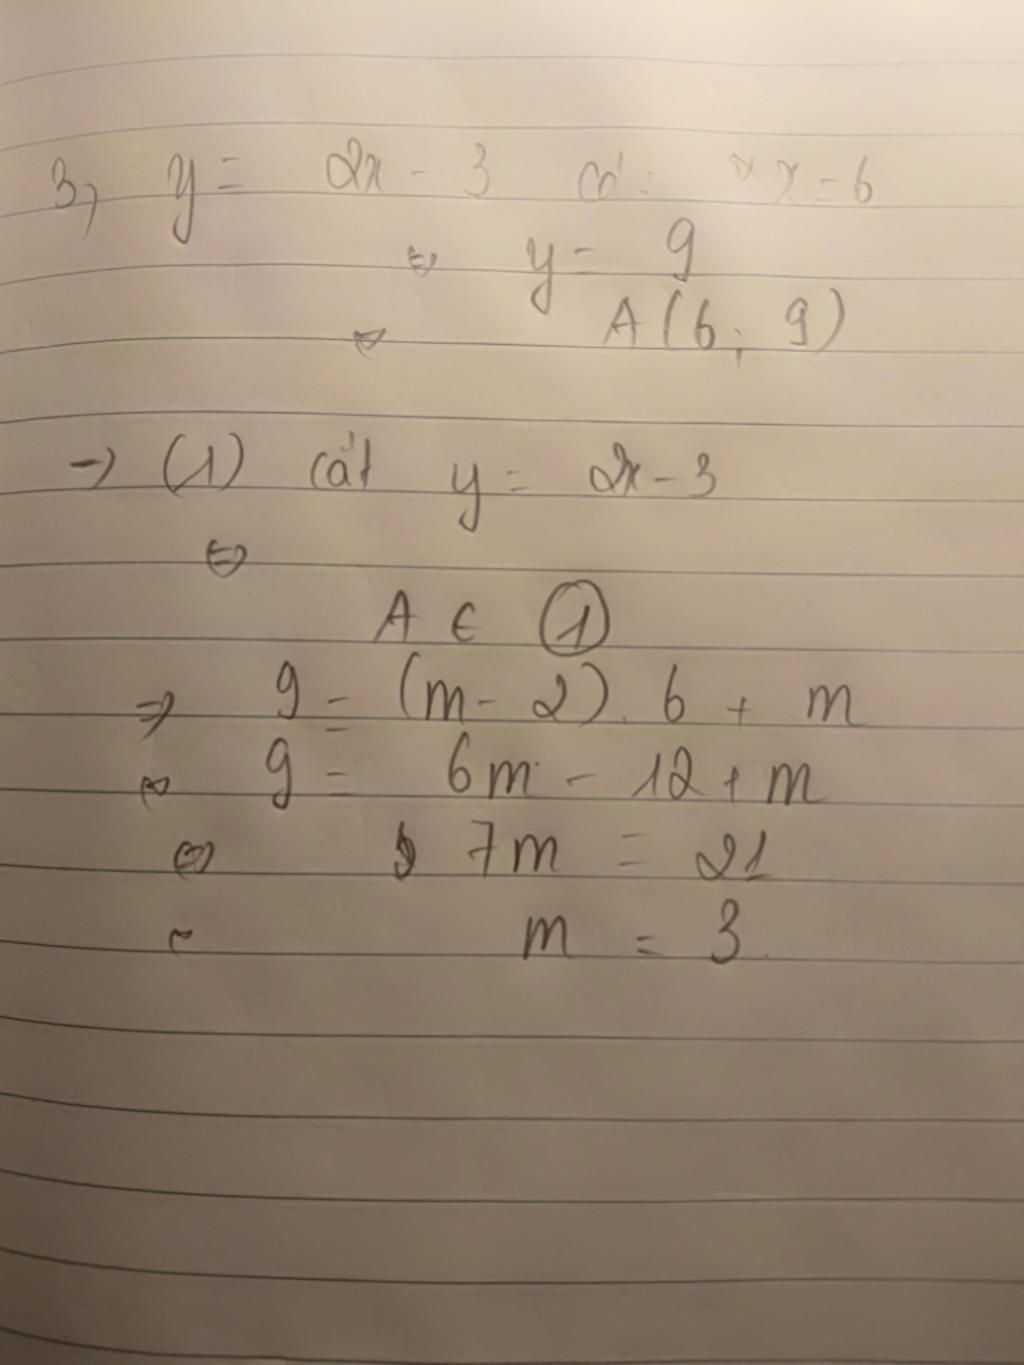 3, y = 2x - 3 có: x = 6
⇔ y = 9
⇔ A(6; 9)
→ (1) cắt y = 2x - 3
⇔
A ∈ ①
⇒ 9 = (m - 2). 6 + m
⇔ 9 = 6m - 12 + m
⇔ 7m = 21
m = 3.